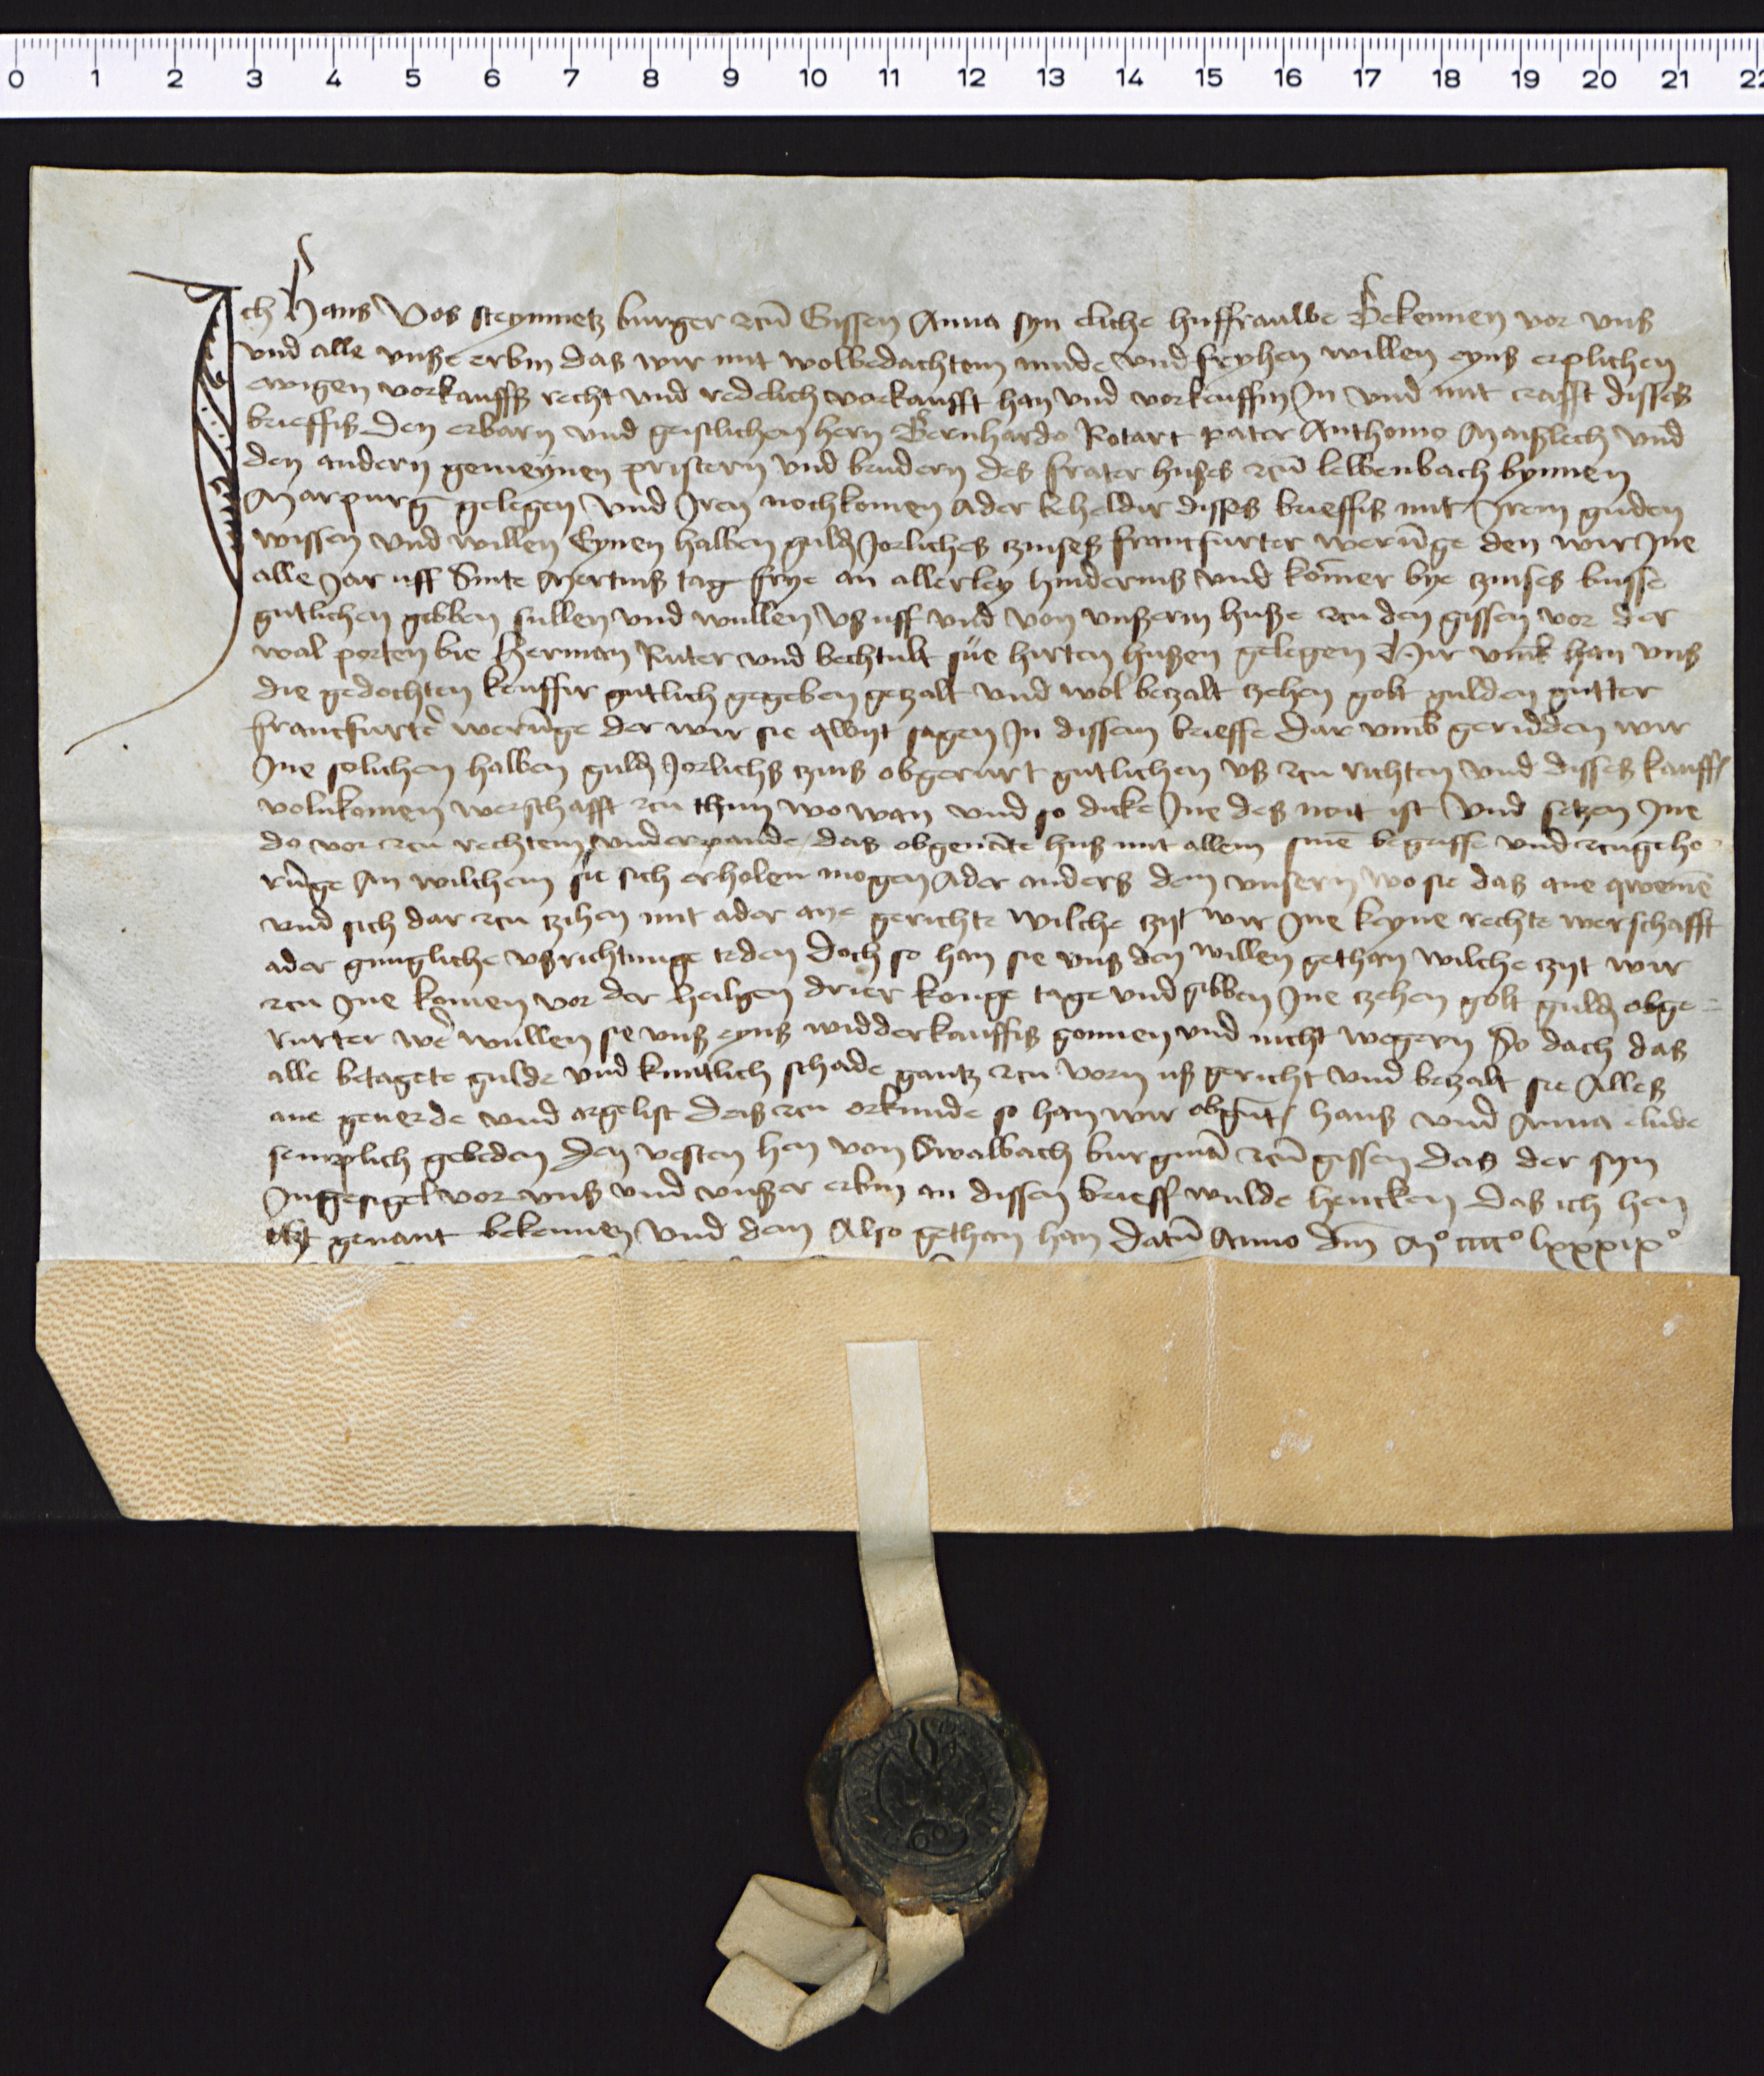 0 1 2 3 4 5 6 7 8 9 10 11 12 13 14 15 16 17 18 19 20 21 22
Ich Hans Vos steynmetz burger zcū Gissen Anna syn eliche huffrauwe Bekennen vor vnß
vnd alle vnße erbin das wir mit wolbedachtem mude vnd fryhen willen eynß erplichen
ewigen vorkauffß recht vnd redelich vorkaufft han vnd vorkeuffin In vnd mit crafft disses
brieffis den erbarn vnd geistlichen hern Bernhardo Rotart pater Anthonio vnd
den andern gemeynen pristern vnd brudern des frater hußes zcū lewenbach bynnen
Marpurg gelegen vnd Iren nochkomen ader beheldir disses brieffis mit Irem guden
wissen vnd willen Eynen halben guld Jorliches zinses franckfurter werūge den wir Ine
alle Jar uff Sente Mertinß tag frye an allerley hinderniß vnd komer bye zinses busse
gutlichen gebben sullen vnd wullen vß uff vnd von vnßerm huße zcu den gissen vor der
wal porten bie Herman Ruter vnd bechtult hirten hußen gelegen Hir vmb han vnß
die gedochten keuffir gutlich gegeben getzalt vnd wol betzalt zehen golt gulden gutter
franckfurter werūge der wir sie qwyt sagen In dissem brieffe dar vmb geridden wir
Ine solichen halben guld Jorlichs zinß obgerurt gutlichen vß zcu richten vnd disses kauff
volnkomen werschafft zcu thun wo wan vnd so dicke Ine des noit ist vnd setzen Ine
do vor zcu rechtem vnderpande das obgenāte huß mit allem sinē begriffe vnd zcugeho
rūge An wilchem sie sich erholen mogen ader anders dem vnsern wo sie das ane qwemē
vnd sich dar zcu zihen mit ader ane gerichte wilche zyt wir Ine keyne rechte werschafft
ader gnugliche vßrichtunge teden Doch so han sie vnß den willen gethan wilche zyt wir
zcu Ine komen vor der heilgen drier konge tage vnd gibben Ine zehen golt guld obge=
rurter we wullen sie vnß eynß widderkauffis gonnen vnd nicht wegern So dach das
alle betagete gulde vnd kuntlich schade gantz zcu vorn uß gericht vnd betzalt sie Alles
ane geuerde vnd argelist Deß zcu orkunde so han wir obgnt hanß vnd Anna elude
semplich gebeden den vesten hen von Swalbach burgmā zcū gissen das der syn
Ingesigel vor vnß vnd vnßer erbin an dissen brieff wulde hencken Das ich hen
itzt genant bekennen vnd dem Also gethan han Datū Anno dm̄ Mº ccccº lxxxixº